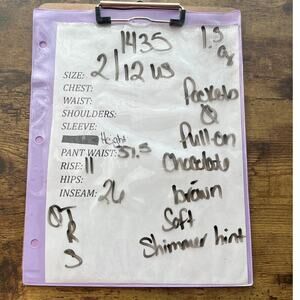 1435
1.3
SIZE: 2/12 us
CHEST:
WAIST:
SHOULDERS:
SLEEVE:
Height
PANT WAIST: 37.5
RISE: 11
HIPS:
INSEAM: 26
OTRS
Pockets
&
Pull-on
Chocolate
brown
Soft
Shimmer hint